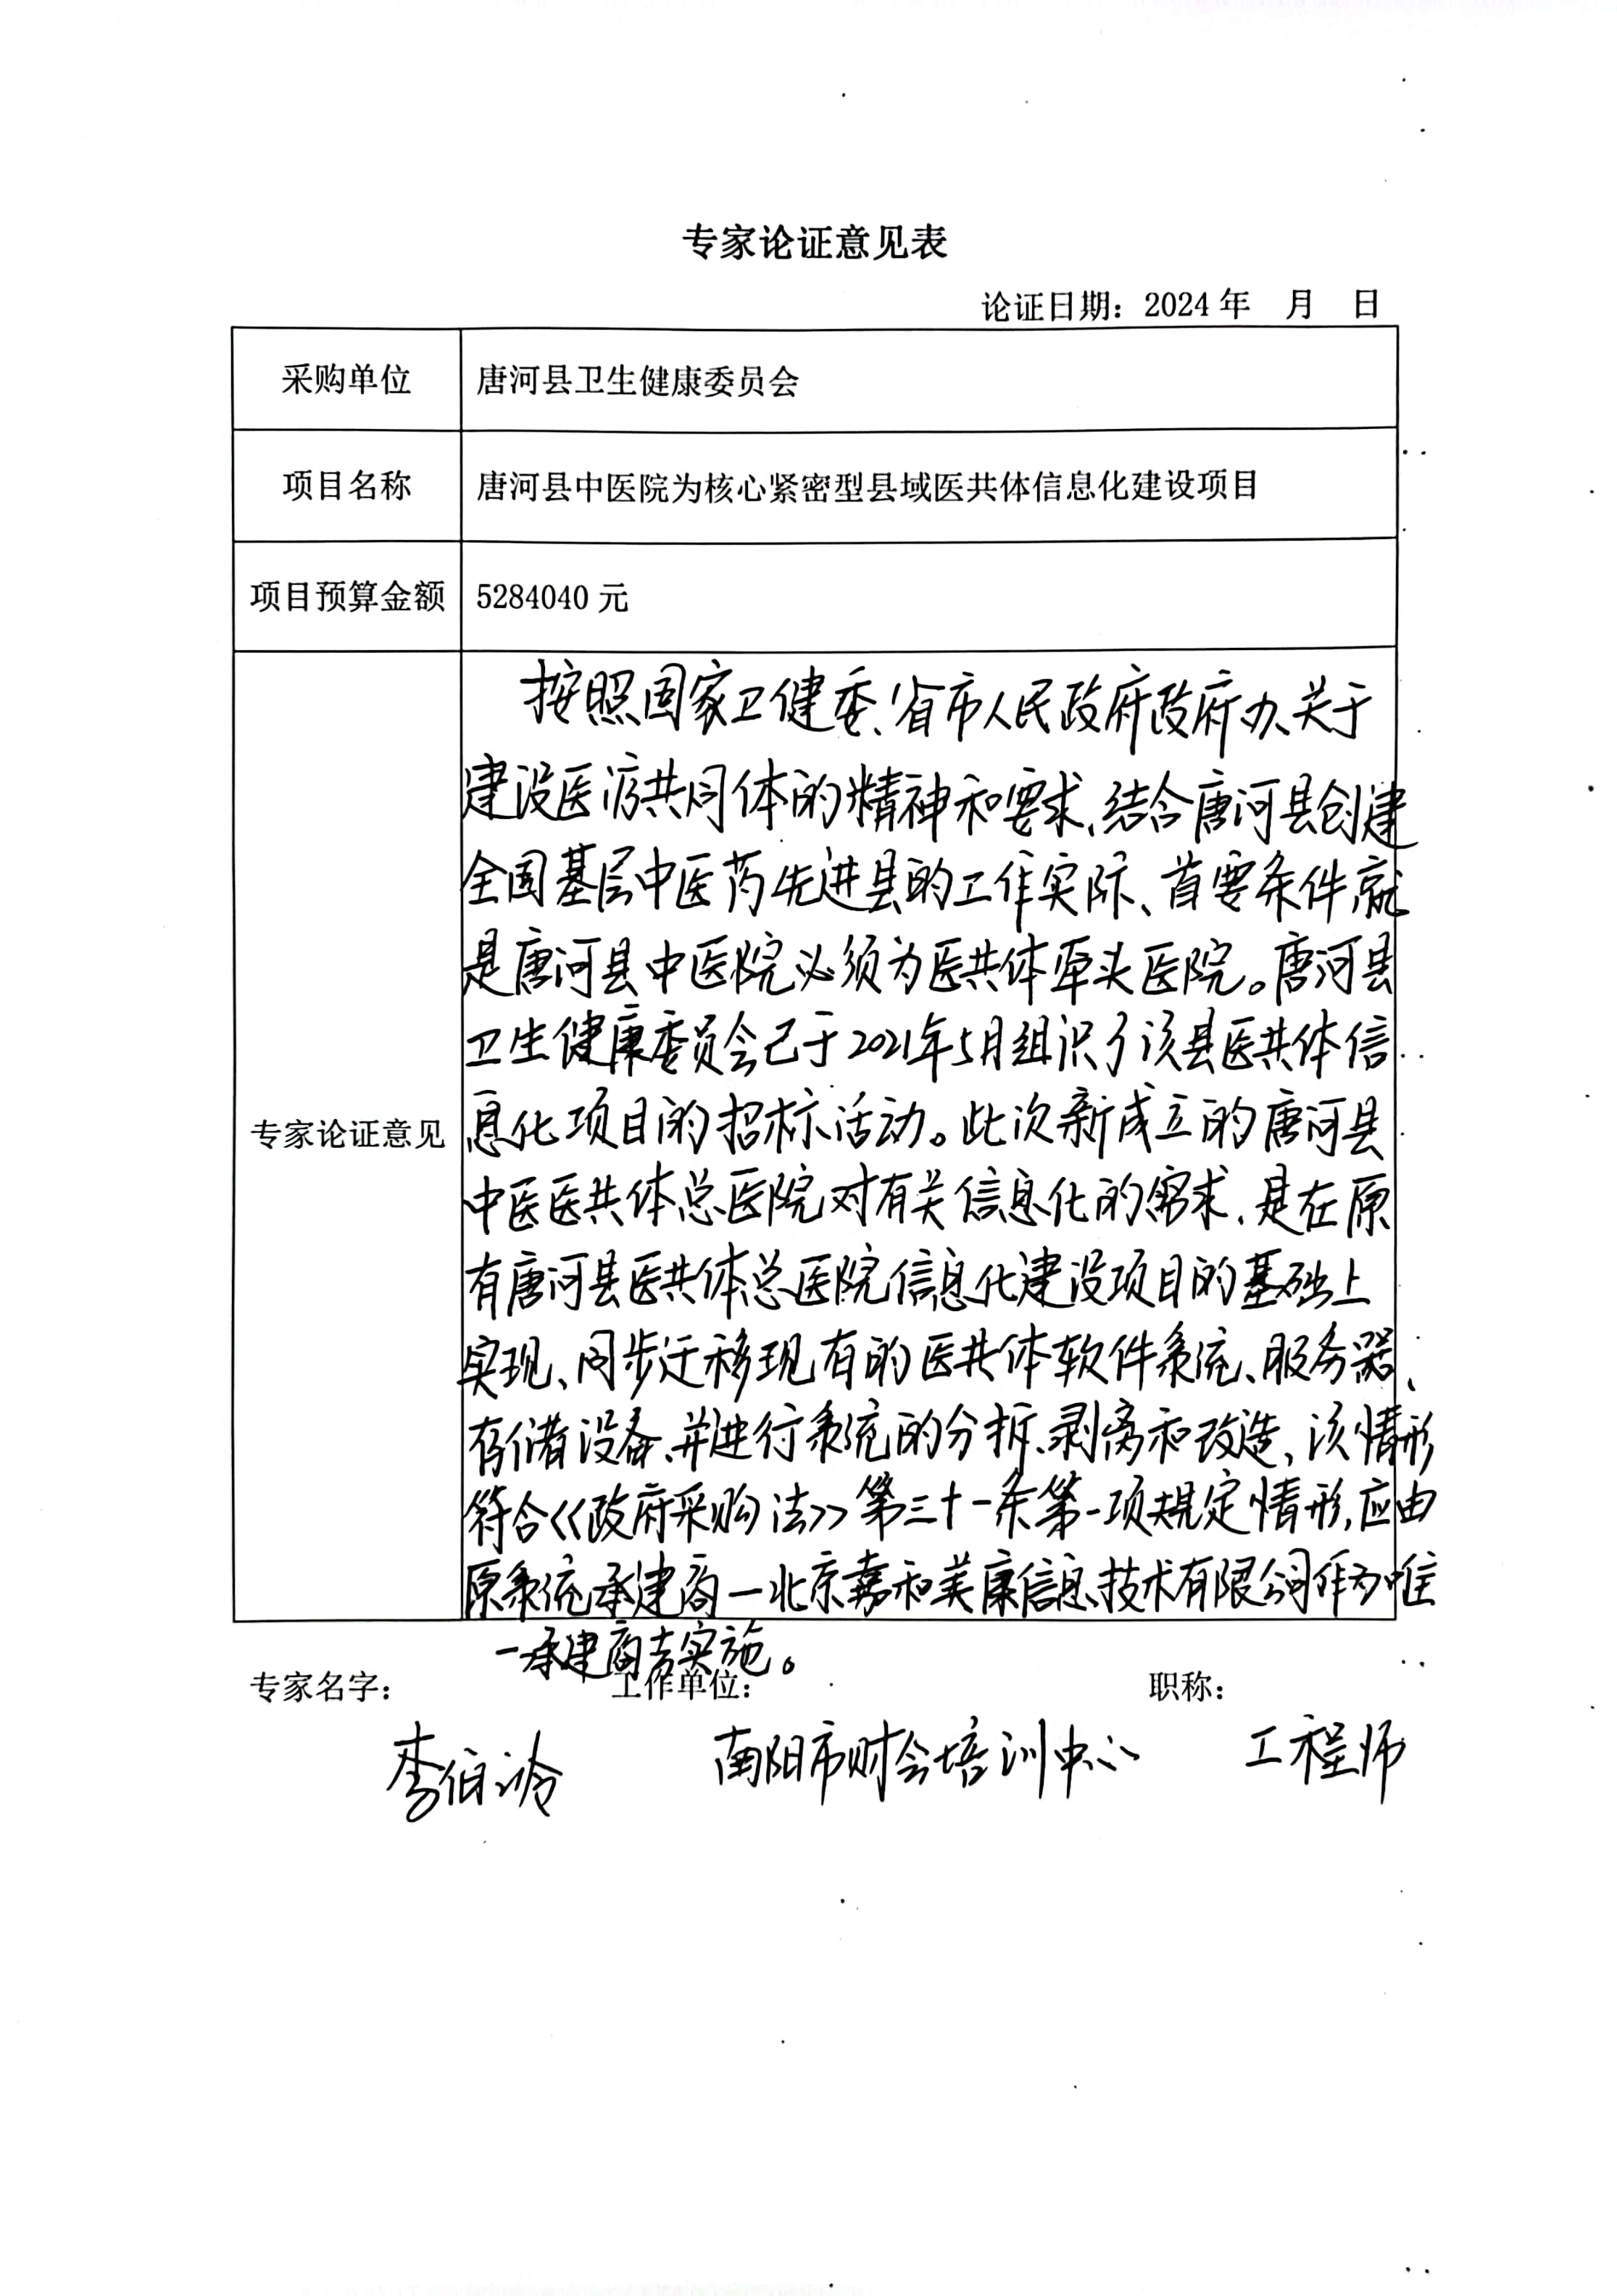 专家论证意见表
论证日期：2024年 月 日
采购单位 唐河县卫生健康委员会
项目名称 唐河县中医院为核心紧密型县域医共体信息化建设项目
项目预算金额 5284040元
专家论证意见
按照国家卫健委、省市人民政府政府办、关于
建设医疗共同体的精神和要求、结合唐河县创建
全国基层中医药先进县的工作实际、首要条件就
是唐河县中医院必须为医共体牵头医院。唐河县
卫生健康委员会已于2021年5月组识了该县医共体信
息化项目的招标活动。此次新成立的唐河县
中医医共体总医院对有关信息化的需求、是在原
有唐河县医共体总医院信息化建设项目的基础上
实现、同步迁移现有的医共体软件系统、服务器、
存储设备、并进行系统的分拆、剥离和改造、该情形
符合《政府采购法》第三十一条第一项规定情形，应由
原系统承建商—北京嘉和美康信息技术有限公司作为唯
一承建商去实施。
专家名字： 工作单位： 职称：
李伯 南阳市财会培训中心 工程师